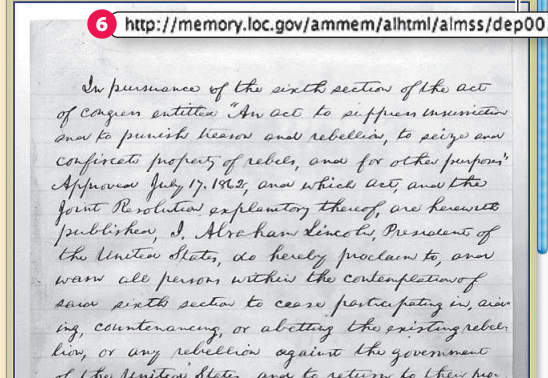 6 http://memory.loc.gov/ammem/alhtml/almss/dep00
In pursuance of the sixth section of the act
of congress entitled "An act to suppress insurrection
and to punish treason and rebellion, to seize and
confiscate property of rebels, and for other purposes"
Approved July 17. 1862, and which act, and the
Joint Resolution explanatory thereof, are herewith
published, I, Abraham Lincoln, President of
the United States, do hereby proclaim to, and
warn all persons within the contemplation of
said sixth section to cease participating in, aid-
ing, countenancing, or abetting the existing rebel-
lion, or any rebellion against the government
of the United States, and to return to their pro-